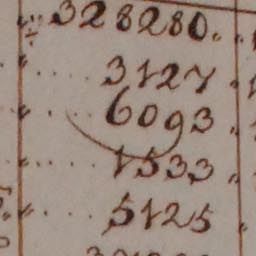 328280.
3127
6093
1533
5125